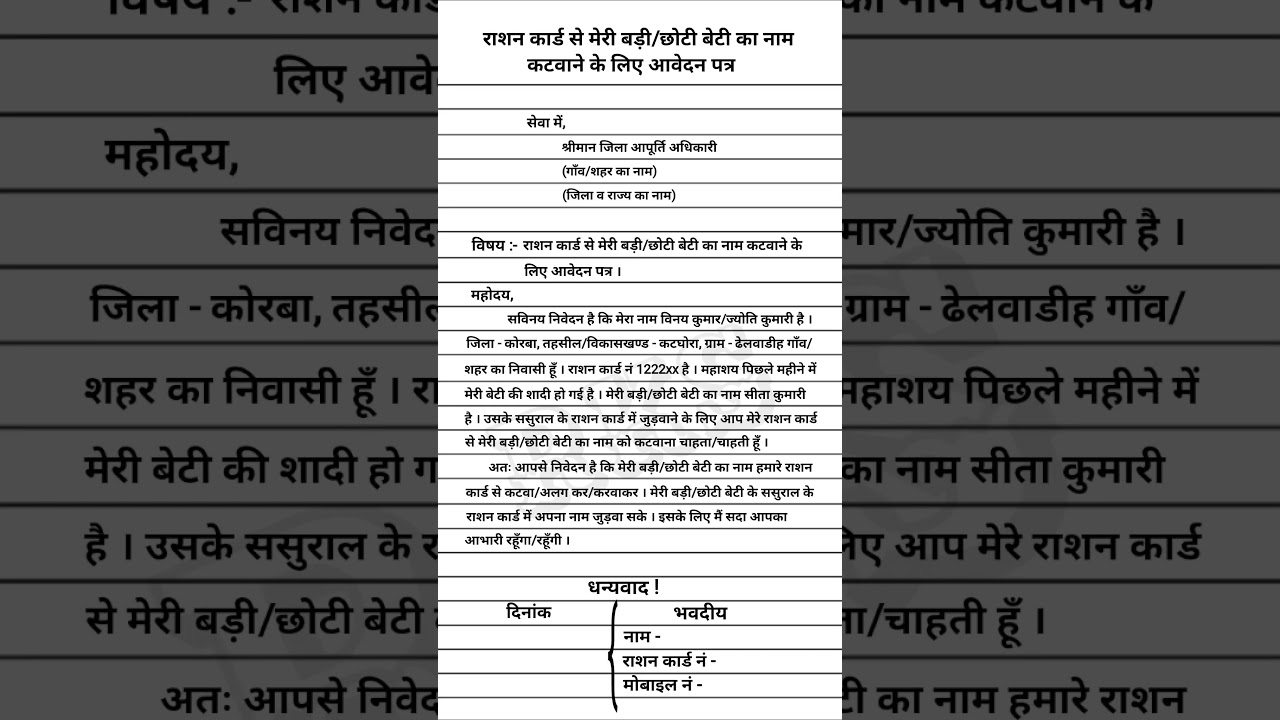 राशन कार्ड से मेरी बड़ी/छोटी बेटी का नाम
कटवाने के लिए आवेदन पत्र
सेवा में,
श्रीमान जिला आपूर्ति अधिकारी
(गाँव/शहर का नाम)
(जिला व राज्य का नाम)
विषय :- राशन कार्ड से मेरी बड़ी/छोटी बेटी का नाम कटवाने के
लिए आवेदन पत्र ।
महोदय,
सविनय निवेदन है कि मेरा नाम विनय कुमार/ज्योति कुमारी है ।
जिला - कोरबा, तहसील/विकासखण्ड - कटघोरा, ग्राम - ढेलवाडीह गाँव/
शहर का निवासी हूँ । राशन कार्ड नं 1222xx है । महाशय पिछले महीने में
मेरी बेटी की शादी हो गई है । मेरी बड़ी/छोटी बेटी का नाम सीता कुमारी
है । उसके ससुराल के राशन कार्ड में जुड़वाने के लिए आप मेरे राशन कार्ड
से मेरी बड़ी/छोटी बेटी का नाम को कटवाना चाहता/चाहती हूँ ।
अतः आपसे निवेदन है कि मेरी बड़ी/छोटी बेटी का नाम हमारे राशन
कार्ड से कटवा/अलग कर/करवाकर । मेरी बड़ी/छोटी बेटी के ससुराल के
राशन कार्ड में अपना नाम जुड़वा सके । इसके लिए मैं सदा आपका
आभारी रहूँगा/रहूँगी ।
धन्यवाद !
दिनांक
भवदीय
नाम -
राशन कार्ड नं -
मोबाइल नं -